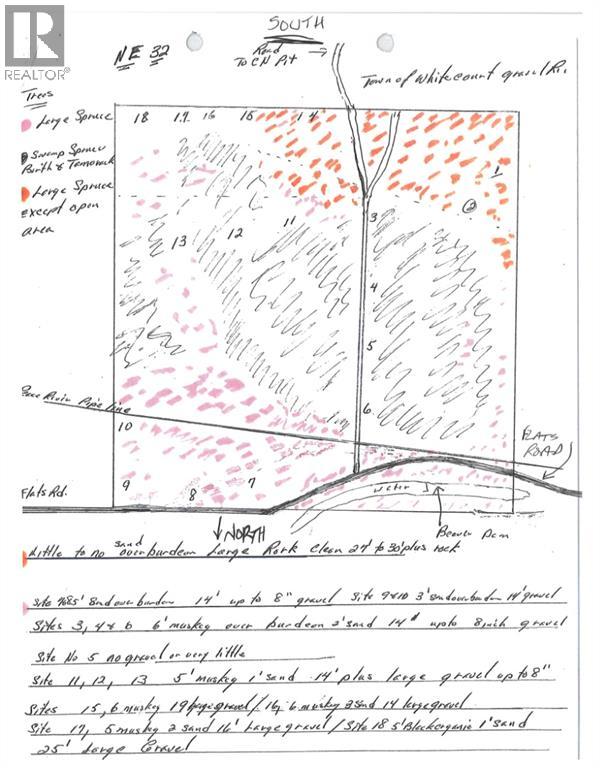 SOUTH
R
REALTOR®
NE 32
Road
To CN Pit
Town of Whitecourt gravel
Trees
Large Spruce
18 17 16 15 14
Swamp Spruce
Birth & Tamorack
Large Spruce
except open
area
1
2
3
11
12
13
4
5
6
Pipe line
10
FLATS
ROAD
9
8
7
Flats Rd.
water
NORTH
Beaver Dam
sand
Little to no overburden Large Rock Clean 27' to 30' plus rock
Site 8' Sand overburden 14' up to 8" gravel Site 9&10 3' sand overburden 14' gravel
Sites 3, 4 & 6 6' muskeg over burdeen 2' sand 14" upto 8 inch gravel
Site No 5 no gravel or very little
Site 11, 12, 13 5' muskey 1' sand 14' plus large gravel up to 8"
Sites 15, 6 muskey 19 large gravel / 16, 6 muskey 2 sand 14 large gravel
Site 17, 5 muskey 2 sand 16' Large gravel / Site 18 5' Black organic 1' sand
25' Large Gravel